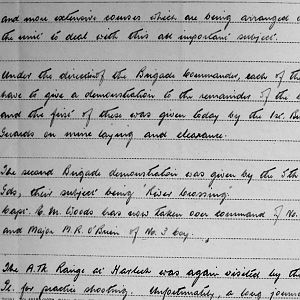 and more extensive courses which are being arranged
the unit to deal with this all important subject.
Under the direction of the Brigade Commander, each of th
have to give a demonstration to the remainder of the
and the first of these was given today by the 1st. B
Guards on mine laying and clearance.
The second Brigade demonstration was given by the 5th
Gds, their subject being 'River Crossing'
Capt. C. M. Woods has now taken over command of No.
and Major M.R. O'Brien of No. 3 Coy.
The A.Tk Range at Harlech was again visited by the
Pl. for practice shooting. Unfortunately, a long journ